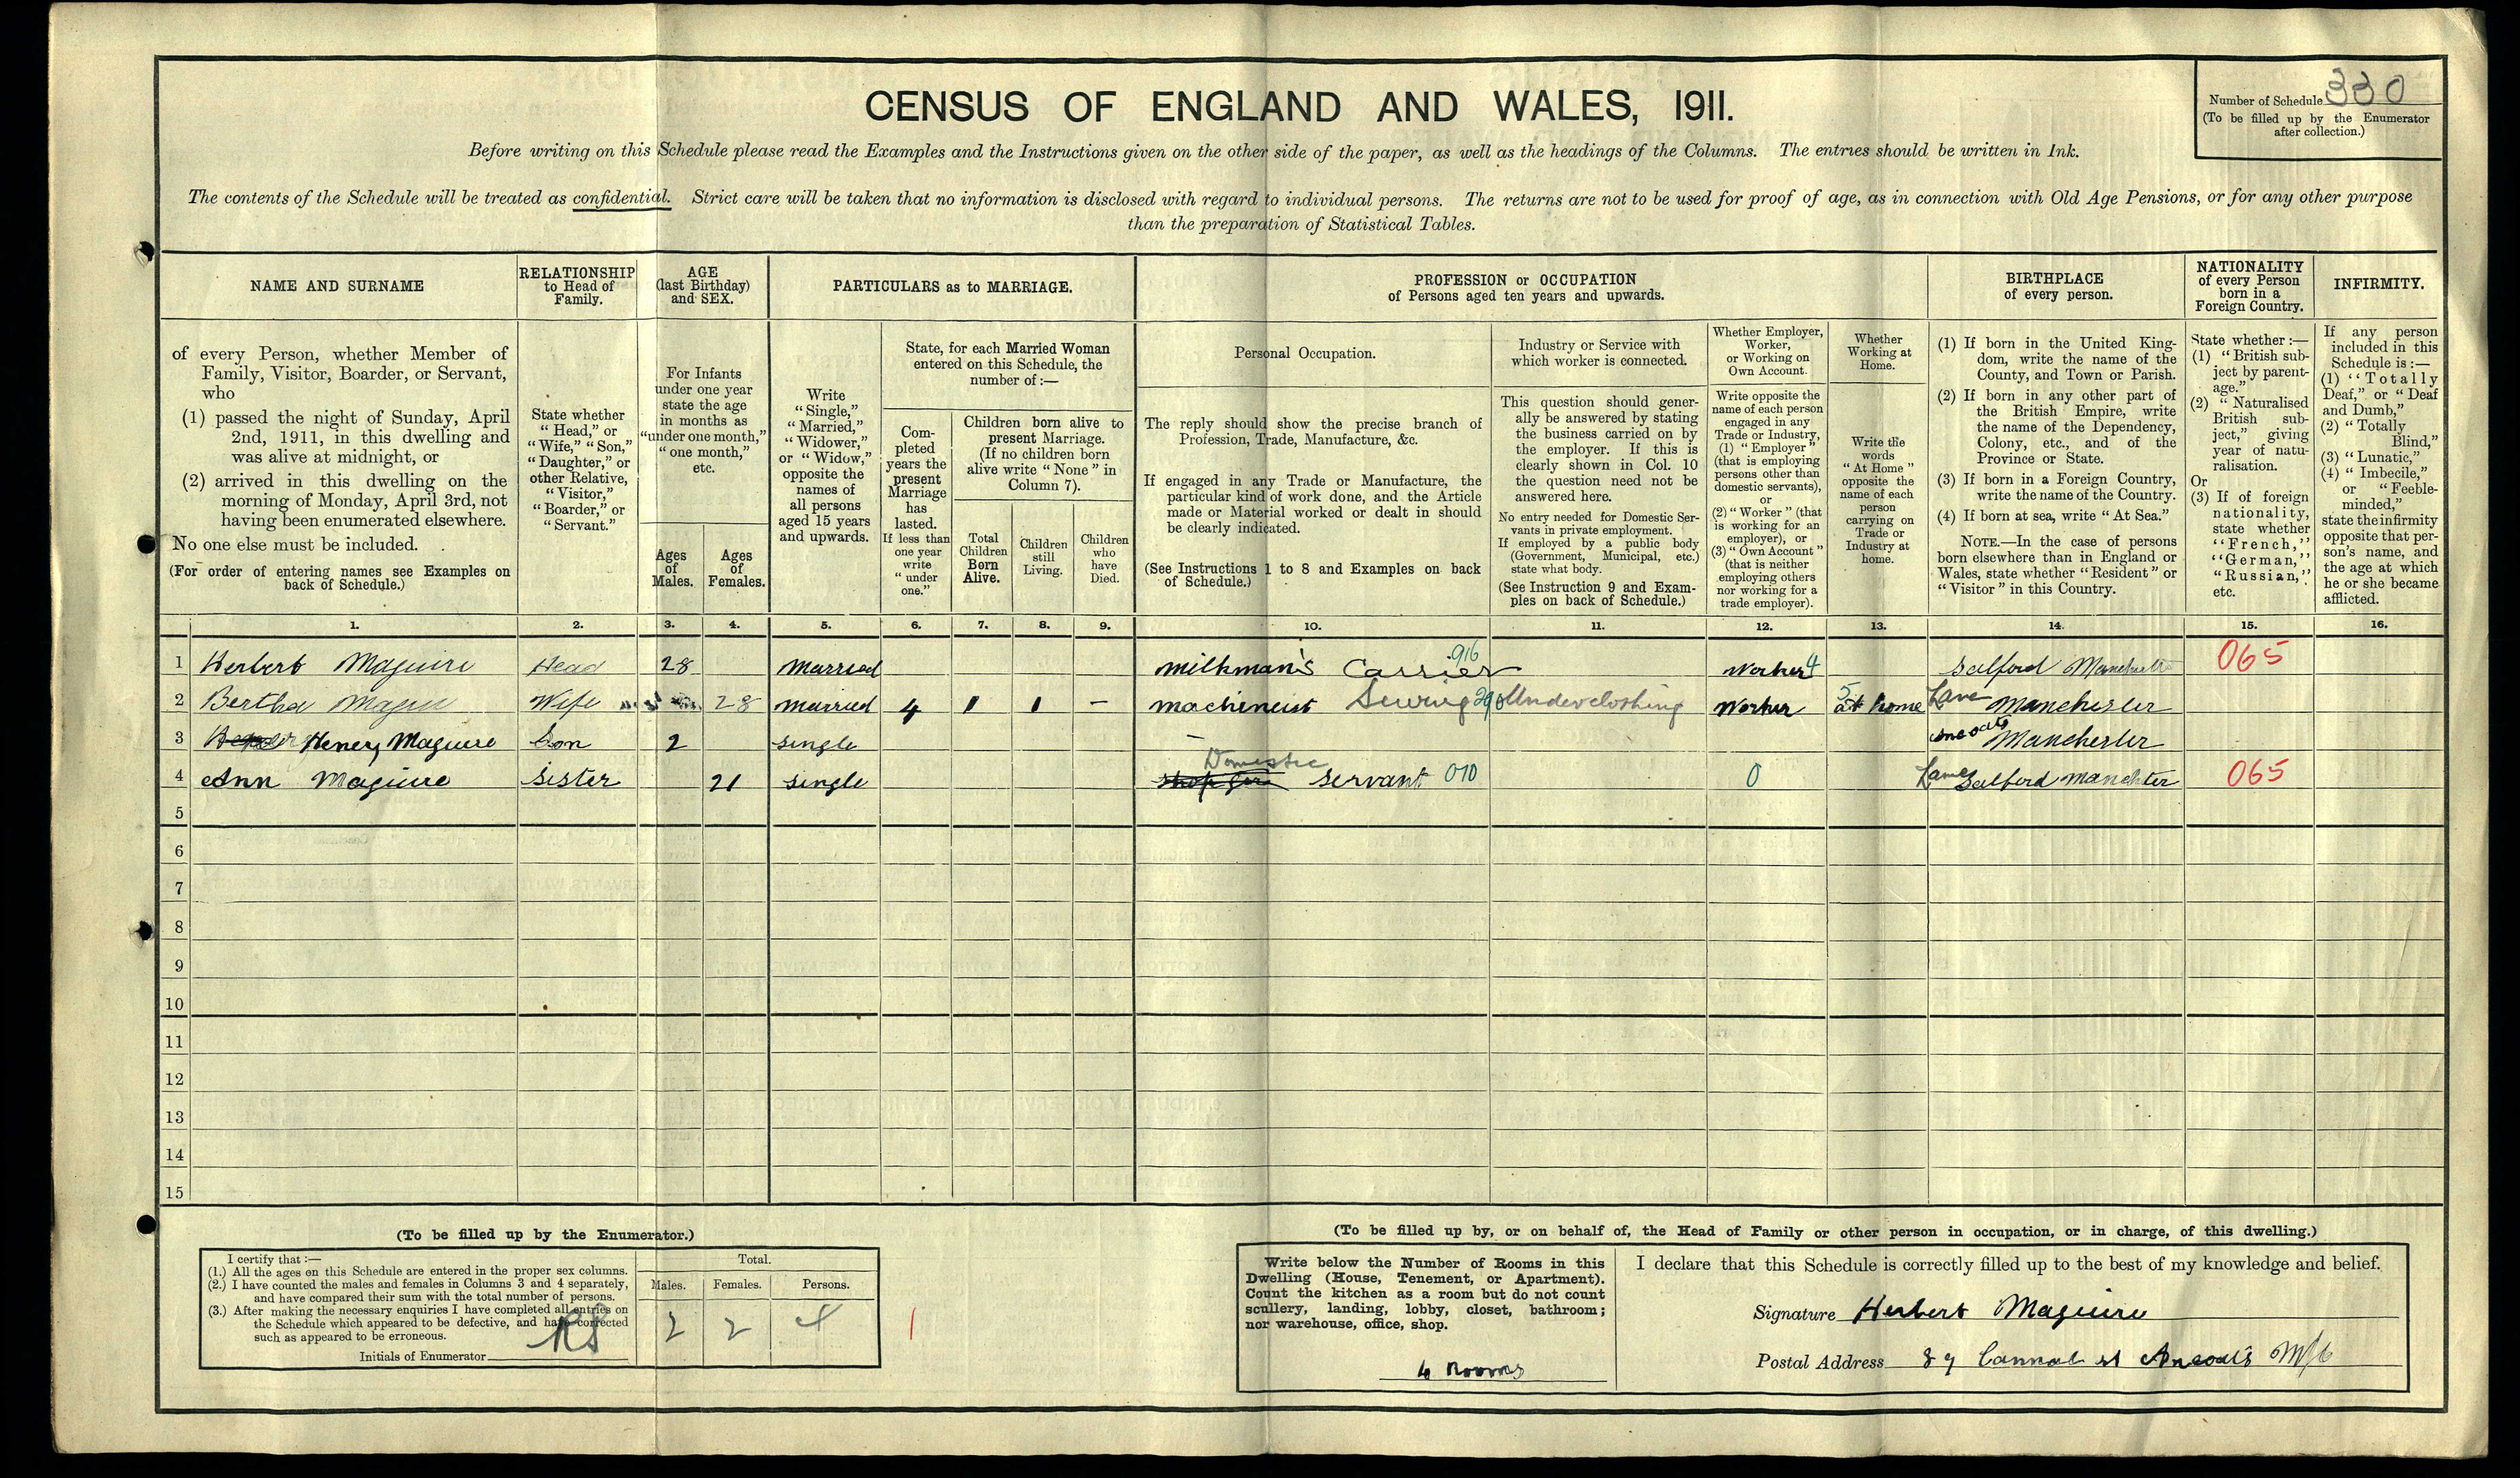 CENSUS OF ENGLAND AND WALES, 1911.
Number of Schedule 330
(To be filled up by the Enumerator
after collection.)
Before writing on this Schedule please read the Examples and the Instructions given on the other side of the paper, as well as the headings of the Columns. The entries should be written in Ink.
The contents of the Schedule will be treated as confidential. Strict care will be taken that no information is disclosed with regard to individual persons. The returns are not to be used for proof of age, as in connection with Old Age Pensions, or for any other purpose
than the preparation of Statistical Tables.
NAME AND SURNAME
RELATIONSHIP
to Head of
Family.
AGE
(last Birthday)
and SEX.
PARTICULARS as to MARRIAGE.
PROFESSION or OCCUPATION
of Persons aged ten years and upwards.
BIRTHPLACE
of every person.
NATIONALITY
of every Person
born in a
Foreign Country.
INFIRMITY.
of every Person, whether Member of
Family, Visitor, Boarder, or Servant,
who
(1) passed the night of Sunday, April
2nd, 1911, in this dwelling and
was alive at midnight, or
(2) arrived in this dwelling on the
morning of Monday, April 3rd, not
having been enumerated elsewhere.
No one else must be included.
(For order of entering names see Examples on
back of Schedule.)
State whether
"Head," or
"Wife," "Son,"
"Daughter," or
other Relative,
"Visitor,"
"Boarder," or
"Servant."
For Infants
under one year
state the age
in months as
"under one month,"
"one month,"
etc.
Ages
of
Males.
Ages
of
Females.
Write
"Single,"
"Married,"
"Widower,"
or "Widow,"
opposite the
names of
all persons
aged 15 years
and upwards.
State, for each Married Woman
entered on this Schedule, the
number of:—
Com-
pleted
years the
present
Marriage
has
lasted.
If less than
one year
write
"under
one."
Children born alive to
present Marriage.
(If no children born
alive write "None" in
Column 7).
Total
Children
Born
Alive.
Children
still
Living.
Children
who
have
Died.
Personal Occupation.
The reply should show the precise branch of
Profession, Trade, Manufacture, &c.
If engaged in any Trade or Manufacture, the
particular kind of work done, and the Article
made or Material worked or dealt in should
be clearly indicated.
(See Instructions 1 to 8 and Examples on back
of Schedule.)
Industry or Service with
which worker is connected.
This question should gener-
ally be answered by stating
the business carried on by
the employer. If this is
clearly shown in Col. 10
the question need not be
answered here.
No entry needed for Domestic Ser-
vants in private employment.
If employed by a public body
(Government, Municipal, etc.)
state what body.
(See Instruction 9 and Exam-
ples on back of Schedule.)
Whether Employer,
Worker,
or Working on
Own Account.
Write opposite the
name of each person
engaged in any
Trade or Industry,
(1) "Employer"
(that is employing
persons other than
domestic servants),
or
(2) "Worker" (that
is working for an
employer), or
(3) "Own Account"
(that is neither
employing others
nor working for a
trade employer).
Whether
Working at
Home.
Write the
words
"At Home"
opposite the
name of each
person
carrying on
Trade or
Industry at
home.
(1) If born in the United King-
dom, write the name of the
County, and Town or Parish.
(2) If born in any other part of
the British Empire, write
the name of the Dependency,
Colony, etc., and of the
Province or State.
(3) If born in a Foreign Country,
write the name of the Country.
(4) If born at sea, write "At Sea."
NOTE.—In the case of persons
born elsewhere than in England or
Wales, state whether "Resident" or
"Visitor" in this Country.
State whether:—
(1) "British sub-
ject by parent-
age."
(2) "Naturalised
British sub-
ject," giving
year of natu-
ralisation.
Or
(3) If of foreign
nationality,
state whether
"French,"
"German,"
"Russian,"
etc.
If any person
included in this
Schedule is:—
(1) "Totally
Deaf," or "Deaf
and Dumb,"
(2) "Totally
Blind,"
(3) "Lunatic,"
(4) "Imbecile,"
or "Feeble-
minded,"
state the infirmity
opposite that per-
son's name, and
the age at which
he or she became
afflicted.
1. 2. 3. 4. 5. 6. 7. 8. 9. 10. 11. 12. 13. 14. 15. 16.
1 Herbert Maguire Head 28 Married Milkman's Carrier 916 Worker 4 Salford 065
2 Bertha Wife 28 Married 4 1 1 – Machineist Sewing 290 Underclothing Worker 5 at home Manchester
3 Heney Maguire Son 2 Single – Ancoats Manchester
4 Ann Maguire Sister 21 Single Domestic Servant 010 0 Salford Manchter 065
5
6
7
8
9
10
11
12
13
14
15
(To be filled up by the Enumerator.)
I certify that:—
(1.) All the ages on this Schedule are entered in the proper sex columns.
(2.) I have counted the males and females in Columns 3 and 4 separately,
and have compared their sum with the total number of persons.
(3.) After making the necessary enquiries I have completed all entries on
the Schedule which appeared to be defective, and have corrected
such as appeared to be erroneous.
Initials of Enumerator
Total.
Males. Females. Persons.
2 2 4
(To be filled up by, or on behalf of, the Head of Family or other person in occupation, or in charge, of this dwelling.)
Write below the Number of Rooms in this
Dwelling (House, Tenement, or Apartment).
Count the kitchen as a room but do not count
scullery, landing, lobby, closet, bathroom;
nor warehouse, office, shop.
4 Rooms
I declare that this Schedule is correctly filled up to the best of my knowledge and belief.
Signature Herbert Maguire
Postal Address 89 Cannal st Ancoats